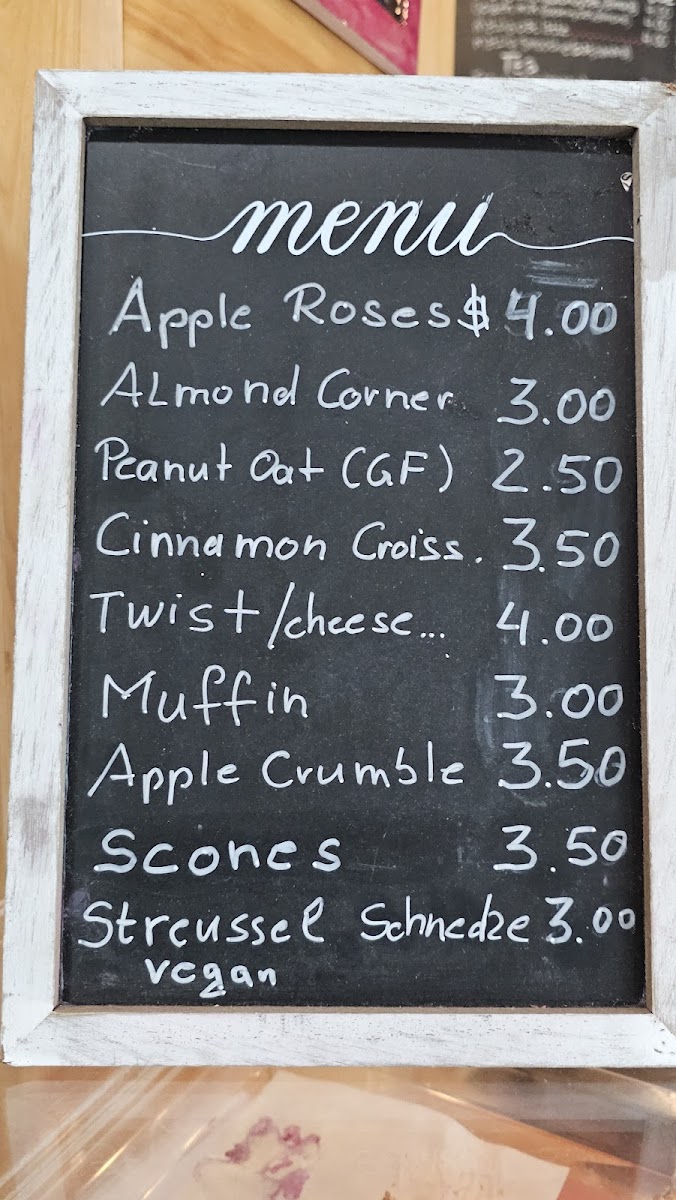 menu
Apple Roses $ 4.00
Almond Corner 3.00
Peanut Oat (GF) 2.50
Cinnamon Croiss. 3.50
Twist/cheese... 4.00
Muffin 3.00
Apple Crumble 3.50
Scones 3.50
Streussel Schnedze 3.00
vegan